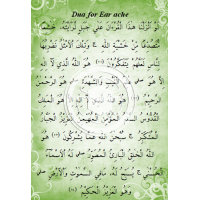 Dua for Ear ache
لَوْ أَنْزَلْنَا هَذَا الْقُرْآنَ عَلَى جَبَلٍ لَرَأَيْتَهُ خَاشِعًا
مُتَصَدِّعًا مِنْ خَشْيَةِ اللَّهِ ج وَتِلْكَ الْأَمْثَالُ نَضْرِبُهَا
لِلنَّاسِ لَعَلَّهُمْ يَتَفَكَّرُونَ (٢١) هُوَ اللَّهُ الَّذِي لَا إِلَهَ
إِلَّا هُوَ ج عَالِمُ الْغَيْبِ وَالشَّهَادَةِ ج هُوَ الرَّحْمَنُ
الرَّحِيمُ (٢٢) هُوَ اللَّهُ الَّذِي لَا إِلَهَ إِلَّا هُوَ الْمَلِكُ
الْقُدُّوسُ السَّلَامُ الْمُؤْمِنُ الْمُهَيْمِنُ الْعَزِيزُ الْجَبَّارُ
الْمُتَكَبِّرُ ج سُبْحَانَ اللَّهِ عَمَّا يُشْرِكُونَ (٢٣) هُوَ
اللَّهُ الْخَالِقُ الْبَارِئُ الْمُصَوِّرُ لَهُ الْأَسْمَاءُ
الْحُسْنَى ج يُسَبِّحُ لَهُ مَا فِي السَّمَوَاتِ وَالْأَرْضِ ج
وَهُوَ الْعَزِيزُ الْحَكِيمُ (٢٤)